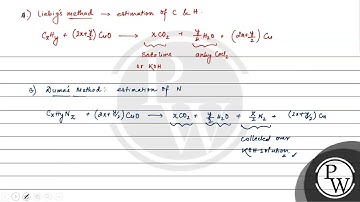 A) Liebig's method → estimation of C & H.
CxHy + (2x+y/2) CuO → xCO2 + y/2 H2O + (2x+y/2) Cu
Sodalime or KOH
anhy CaCl2
B) Duma's Method: estimation of N
CxHyNz + (2x+y/2) CuO → xCO2 + y/2 H2O + z/2 N2 + (2x+y/2) Cu
collected over
KOH solution
PW